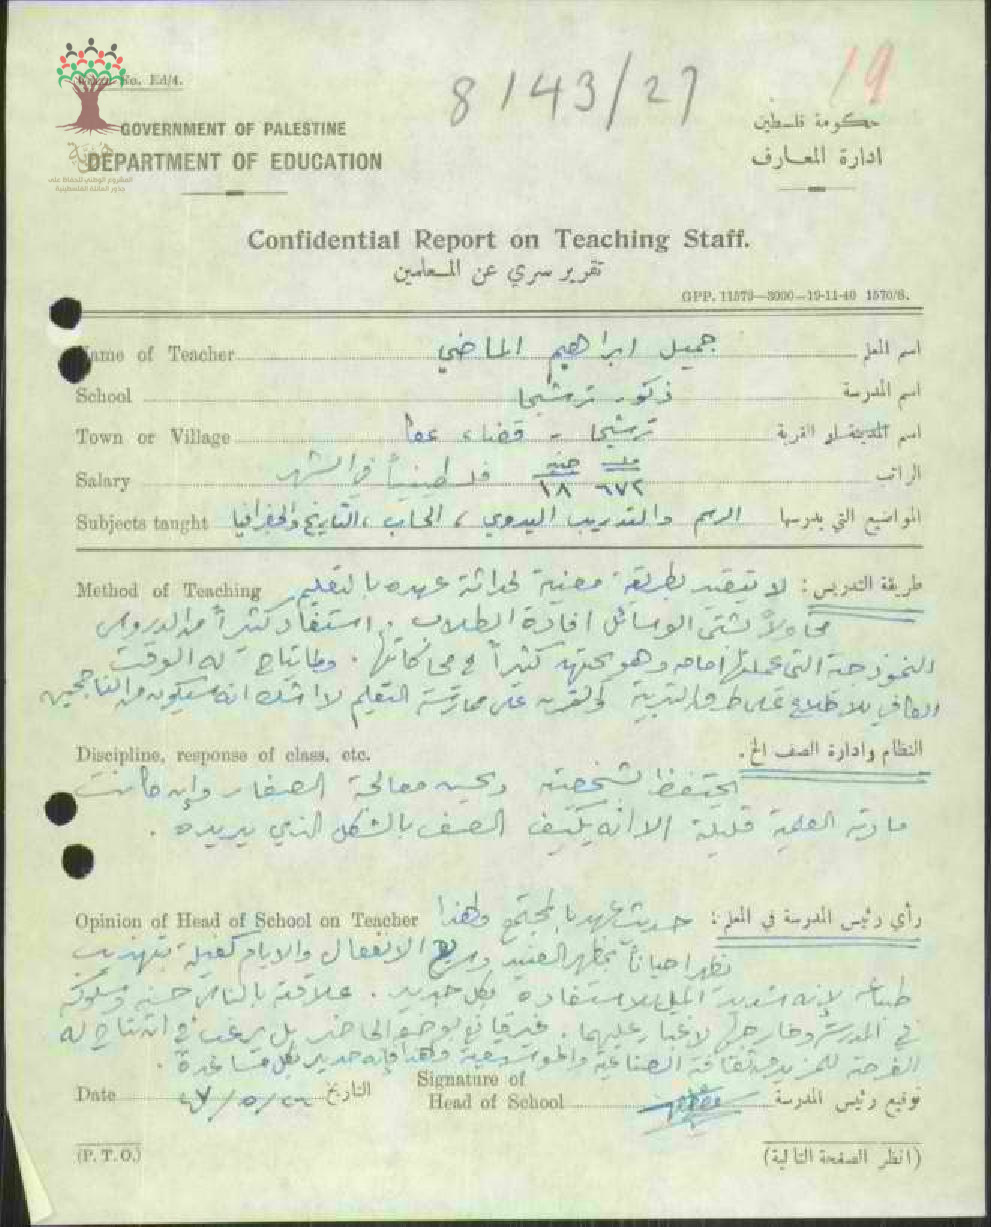 Form No. Ed/4.
8143/27
19
GOVERNMENT OF PALESTINE
DEPARTMENT OF EDUCATION
حكومة فلسطين
ادارة المعارف
هوية
المشروع الوطني للحفاظ على
جذور العائلة الفلسطينية
Confidential Report on Teaching Staff.
تقرير سري عن المعلمين
GPP. 11579—3000—19-11-40 1570/S.
Name of Teacher جميل ابراهيم الماضي اسم المعلم
School ذكور ترشيحا اسم المدرسة
Town or Village ترشيحا - قضاء عكا اسم المدينة او القرية
مل جنيه
Salary ٦٧٢ ١٨ فلسطينياً في الشهر الراتب
Subjects taught الرسم والتدريب اليدوي ، الحساب ، التاريخ والجغرافيا المواضيع التي يدرسها
Method of Teaching لا يتقيد بطريقة معينة لحداثة عهده بالتعليم طريقة التدريس :
محاولاً بشتى الوسائل افادة الطلاب . استفاد كثيراً من الدروس
النموذجية التي عملتها امامه وهو يجتهد كثيراً في محاكاتها . ومتى له الوقت
الكافي للاطلاع على طرق التربية والتمرن على ممارسة التعليم لا اشك انه سيكون من الناجحين
Discipline, response of class, etc. النظام وادارة الصف الخ .
يحتفظ بشخصيته ويحسن معالجة الصغار وان كانت
مادته العلمية قليلة الا انه يكيف الصف بالشكل الذي يريده .
Opinion of Head of School on Teacher حديث عهد بالمجتمع ولهذا رأي رئيس المدرسة في المعلم :
يظهر احياناً بمظهر العنيد وسريع الانفعال والايام كفيلة بتهذيب
طباعه لانه شديد الميل للاستفادة بكل جديد . علاقته بالناس حسنة وسلوكه
في المدرسة وخارجها لا غبار عليهما . غير قانع بوضعه الحاضر بل يرغب في ان تتاح له
الفرصة للمزيد من الثقافة الصناعية ولهذا فانه جدير بكل مساعدة .
Date التاريخ Signature of Head of School توقيع رئيس المدرسة
(P. T. O.) (انظر الصفحة التالية)